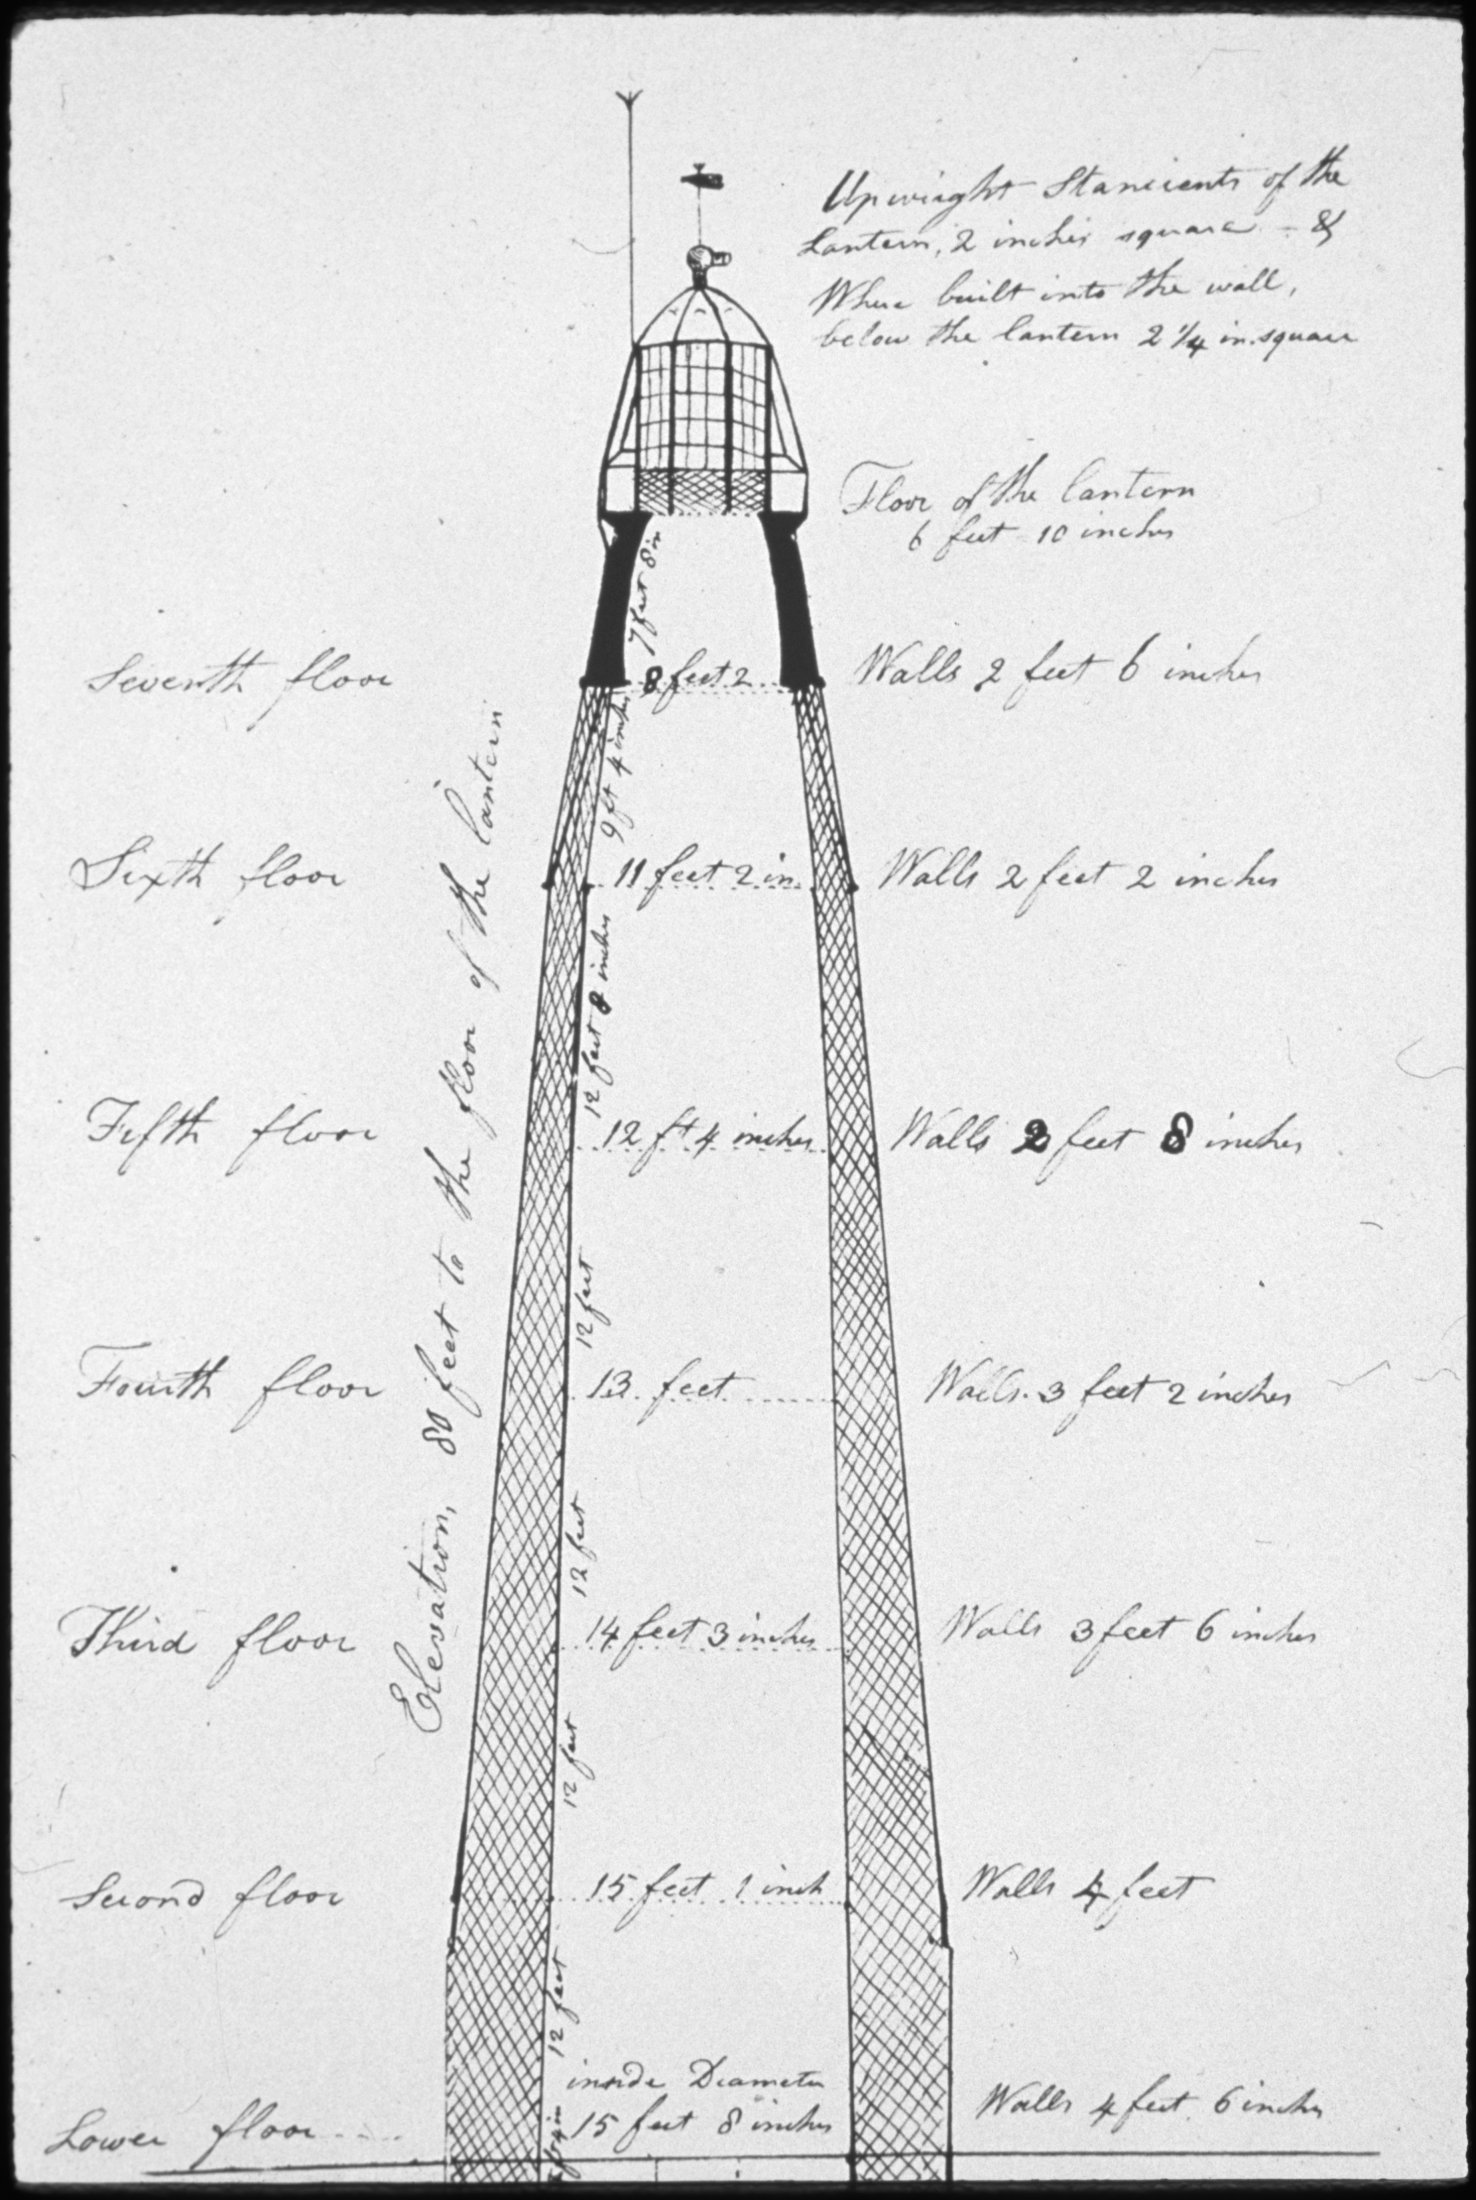 Upwright Stancients of the
Lantern, 2 inches square - &
Where built into the wall,
below the lantern 2 1/4 in. square
Floor of the lantern
6 feet 10 inches
7 feet 8 in
Seventh floor 8 feet 2 Walls 2 feet 6 inches
9 ft 4 inches
Sixth floor 11 feet 2 in Walls 2 feet 2 inches
12 feet 8 inches
Elevation, 80 feet to the floor of the lantern
Fifth floor 12 ft 4 inches Walls 2 feet 8 inches
12 feet
Fourth floor 13 feet Walls. 3 feet 2 inches
12 feet
Third floor 14 feet 3 inches Walls 3 feet 6 inches
12 feet
Second floor 15 feet 1 inch Walls 4 feet
12 feet
inside Diameter
Lower floor 15 feet 8 inches Walls 4 feet 6 inches